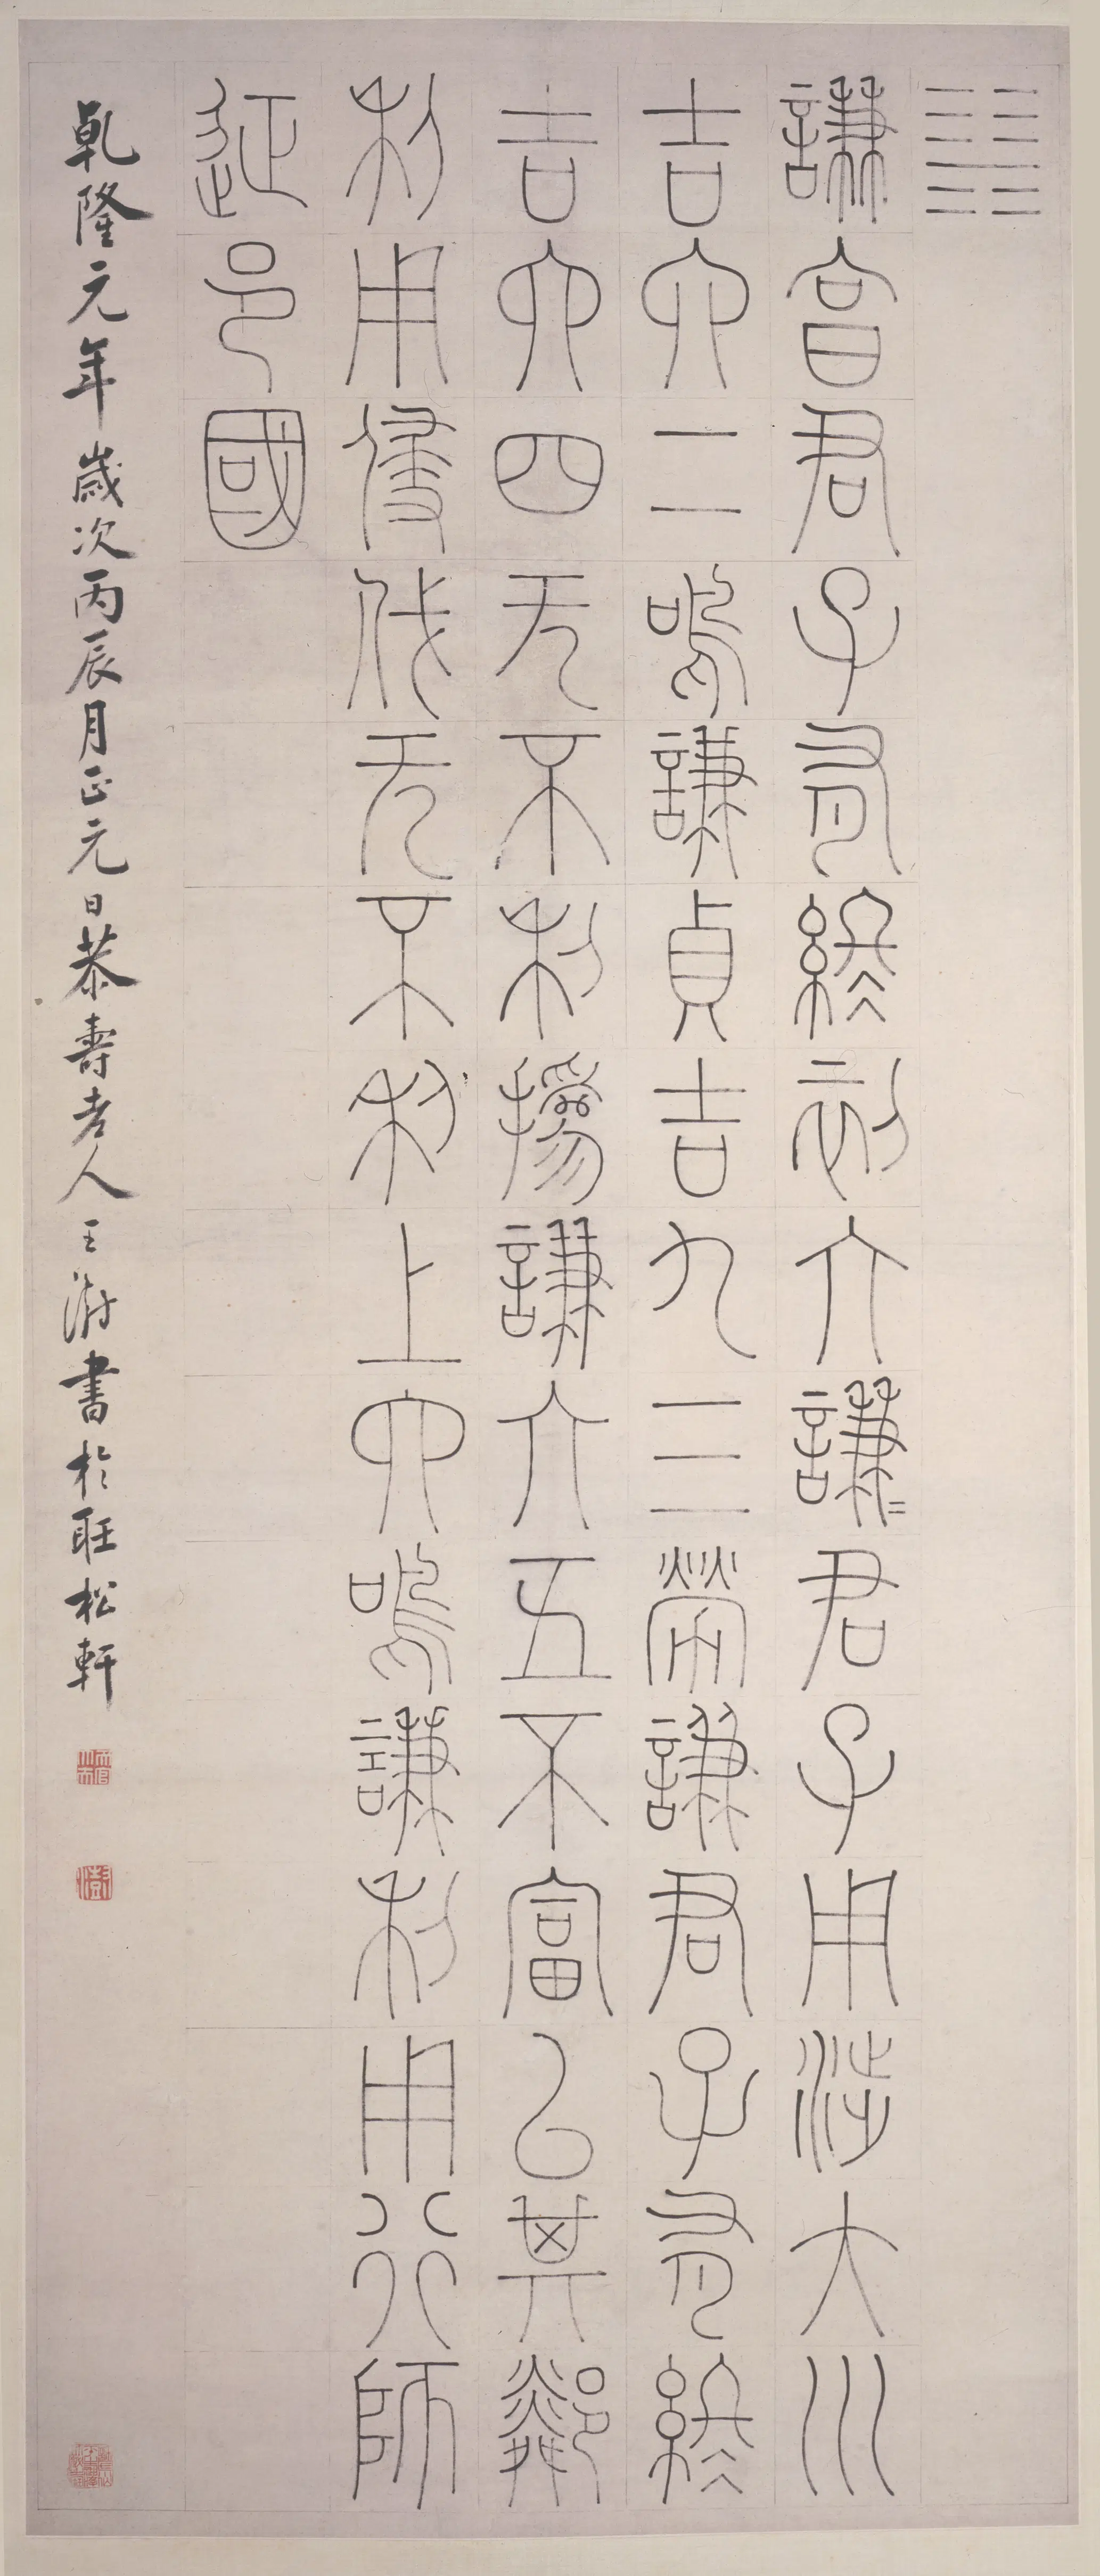 ䷎
謙亯君子有終初六謙〻君子用涉大川
吉六二鳴謙貞吉九三勞謙君子有終
吉六四无不利撝謙六五不富㠯其鄰
利用侵伐无不利上六鳴謙利用行師
征邑國
乾隆元年歲次丙辰月正元日恭壽老人王澍書於聽松軒
澍